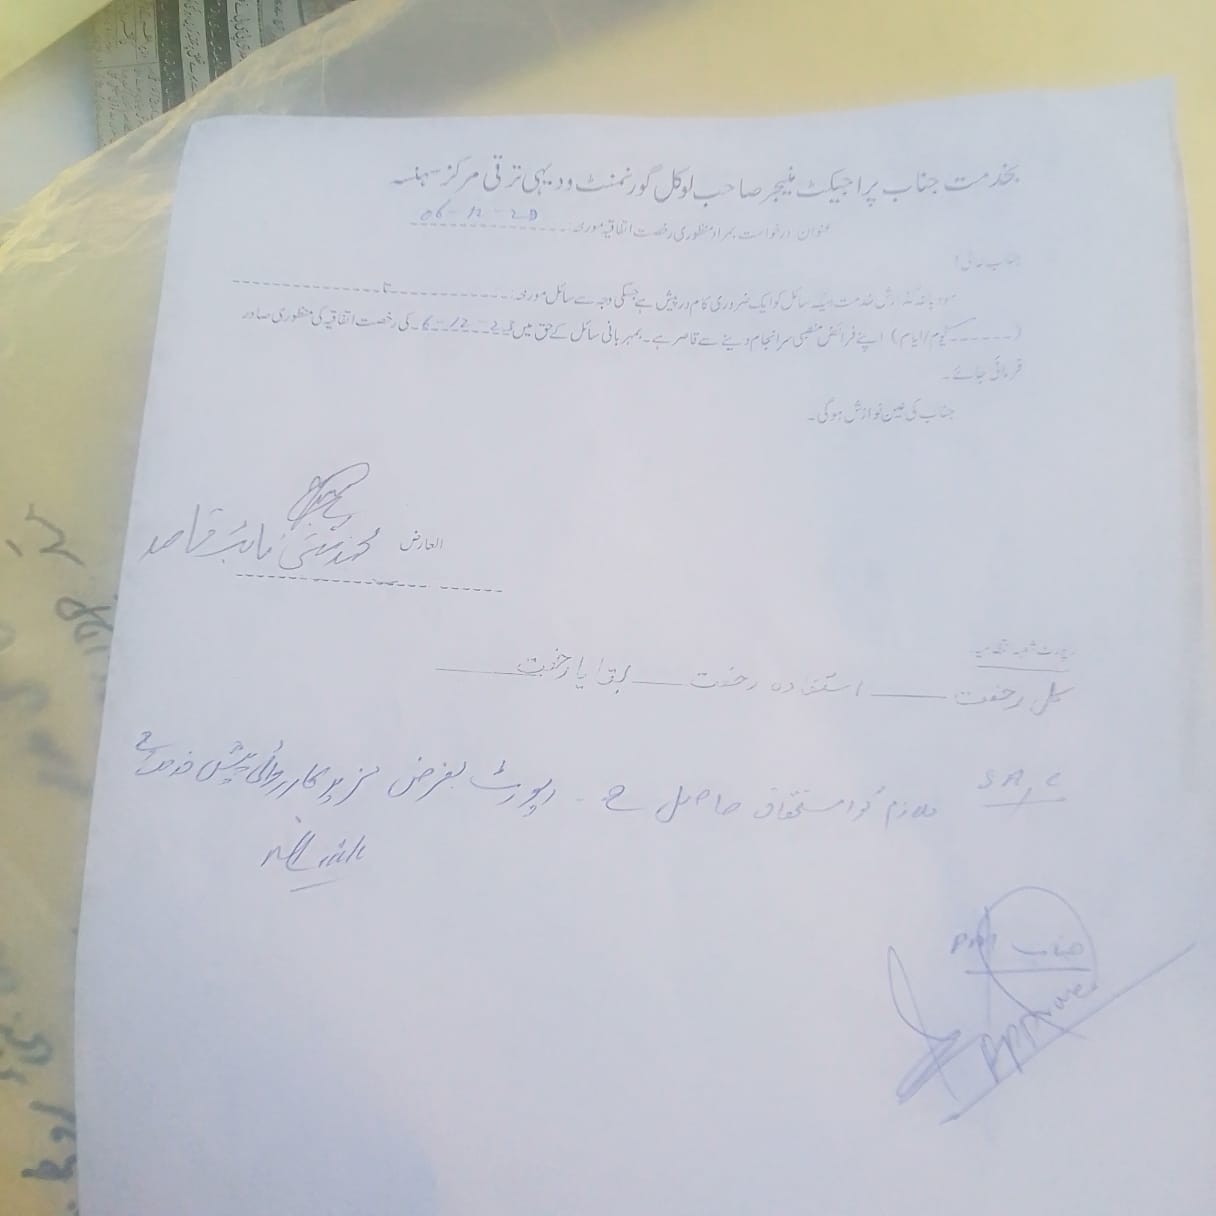 بخدمت جناب پراجیکٹ منیجر صاحب لوکل گورنمنٹ و دیہی ترقی مرکز سہنسہ
عنوان: درخواست بمراد منظوری رخصت اتفاقیہ مورخہ 06-12-20
جناب عالی!
مودبانہ گذارش خدمت ہیکہ سائل کو ایک ضروری کام درپیش ہے جسکی وجہ سے سائل مورخہ ---------- تا ----------
(------یوم/ایام) اپنے فرائض منصبی سرانجام دینے سے قاصر ہے۔ بمہربانی سائل کے حق میں 6-12-2 کی رخصت اتفاقیہ کی منظوری صادر
فرمائی جائے۔
جناب کی عین نوازش ہوگی۔
العارض محمد نائب قاصد
رپورٹ شعبہ انتظامیہ
کل رخصت ____ استفادہ رخصت ____ بقایا رخصت ____
ملازم کو استحقاق حاصل ہے۔ رپورٹ بغرض مزید کارروائی پیش خدمت ہے
جناب PM
Approve